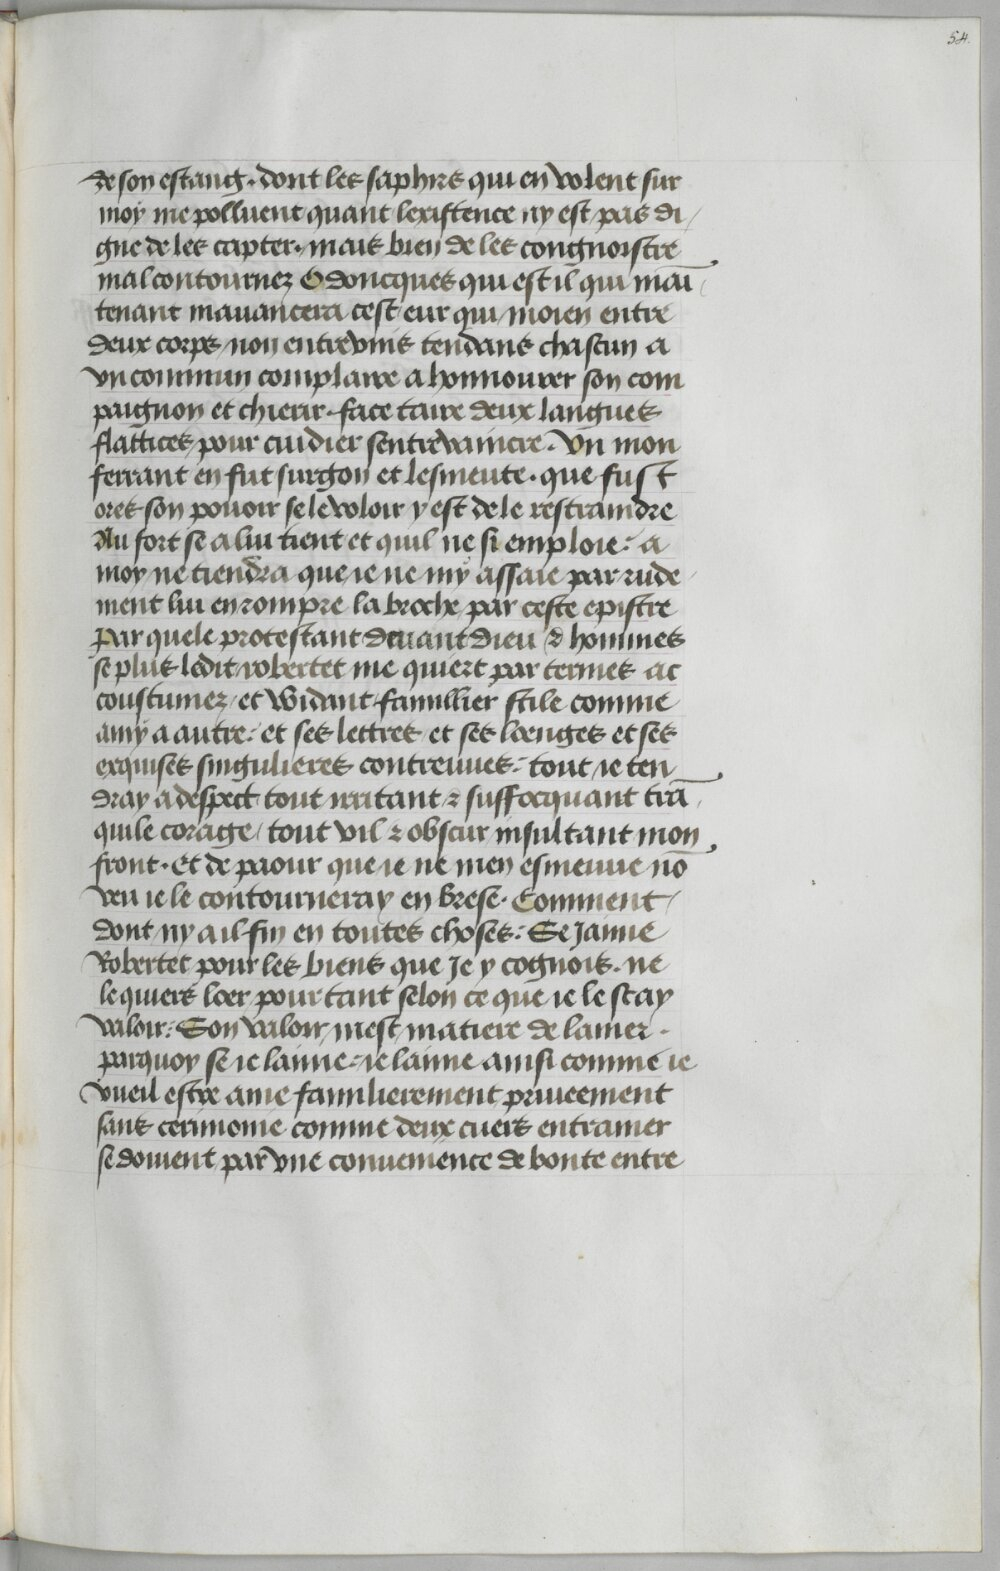 54.
de son estang. dont les saphirs qui en volent sur
moy me polluent quant lexistence ny est pas di/
gne de les capter. mais bien de les congnoistre
mal contournez O doncques qui est il qui mai͞
tenant mauancera cest eur qui moien entre
deux corps non entreunis tendans chascun a
vn commun complaire a honnourer son com
paignon et chierir. face taire deux langues
flattices pour cuidier sentrevaincre. Vn mon
ferrant en fut surgon et lesmeute. que fust
ores son pouoir se le voloir y est de le restraindre
Au fort se a lui tient et quil ne si emploie: a
moy ne tiendra que ie ne my assaie par rude
ment lui en rompre la broche par ceste epistre
Par quele protestant deuant dieu & hommes
se plus ledit robertet me quiert par termes ac
coustumez et widant familier stile comme
amy a autre: et ses lettres et ses loenges et ses
exquises singulieres contreuues: tout ie ten
dray a despect tout irritant & suffocquant tra͞
quile corage/ tout vil & obscur insultant mon
front. Et de paour que ie ne men esmeuue no͞
veu ie le contourneray en brese. Comment
dont ny a il fin en toutes choses: Se jaime
Robertet pour les biens que Je y cognois. ne
le quiers loer pour tant selon ce que ie le scay
valoir: Son valoir mest matiere de lamer.
parquoy se ie laime: ie laime ainsi comme ie
vueil estre ame familierement priueement
sans cerimonie comme deux cuers entramer
se doiuent par vne conuenience de bonte entre